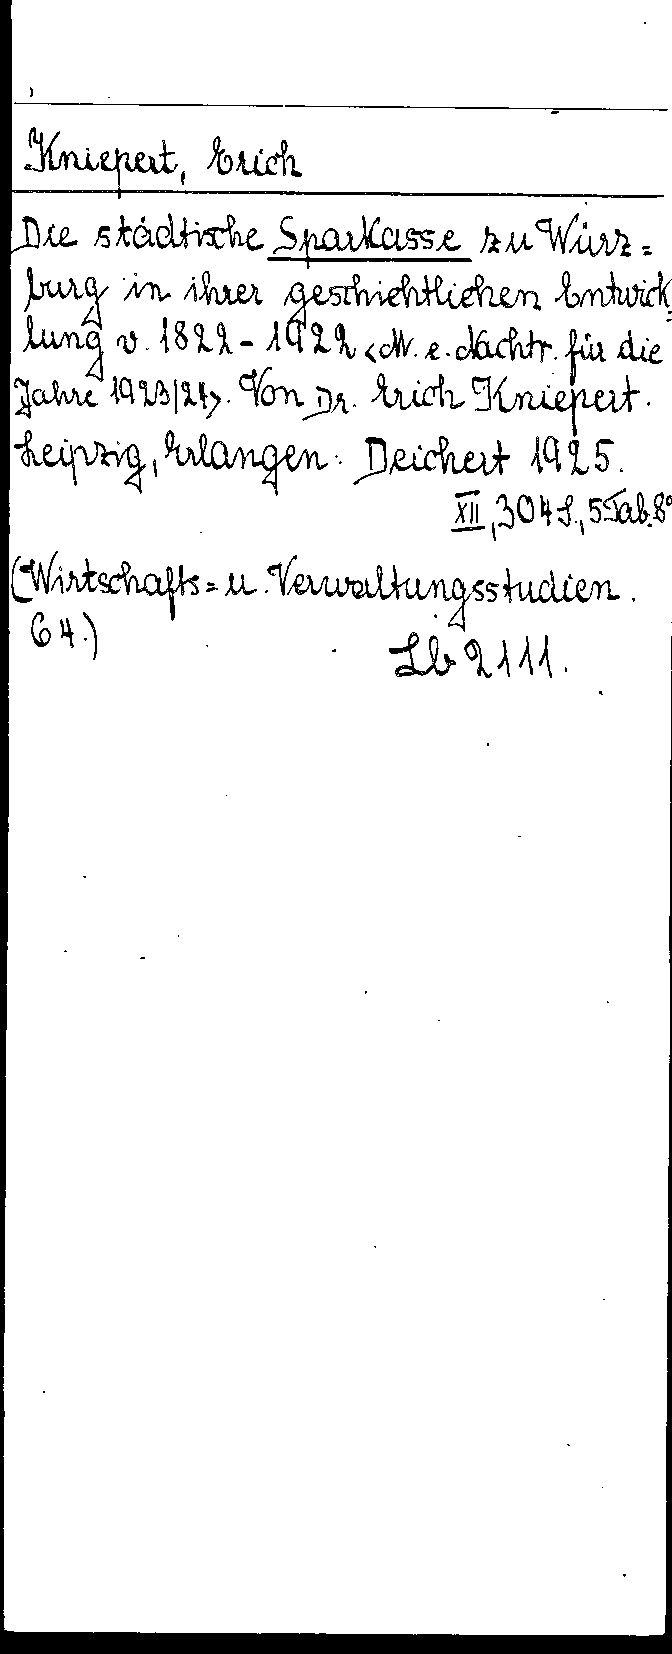 Kniepert, Erich
Die städtische Sparkasse zu Würz=
burg in ihrer geschichtlichen Entwick=
lung v. 1822-1922 <M. e. Nachtr. für die
Jahre 1923/24>. Von Dr. Erich Kniepert.
Leipzig, Erlangen: Deichert 1925.
XII, 304 S., 5 Tab. 8°
(Wirtschafts= u. Verwaltungsstudien.
64.)
Lb 2111.